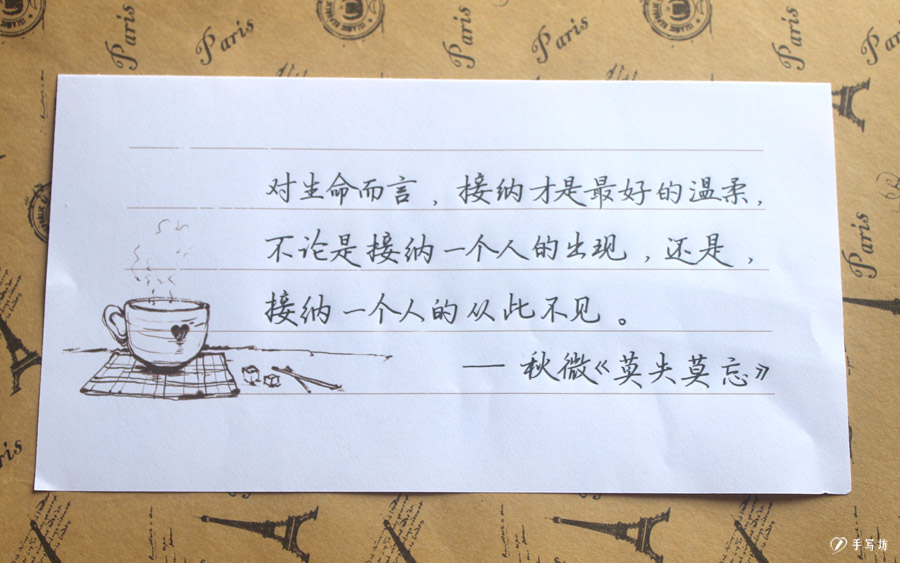 Paris
Paris
Paris
Paris
Paris
对生命而言，接纳才是最好的温柔，
不论是接纳一个人的出现，还是，
接纳一个人的从此不见。
— 秋微《莫失莫忘》
Paris
Paris
手写坊